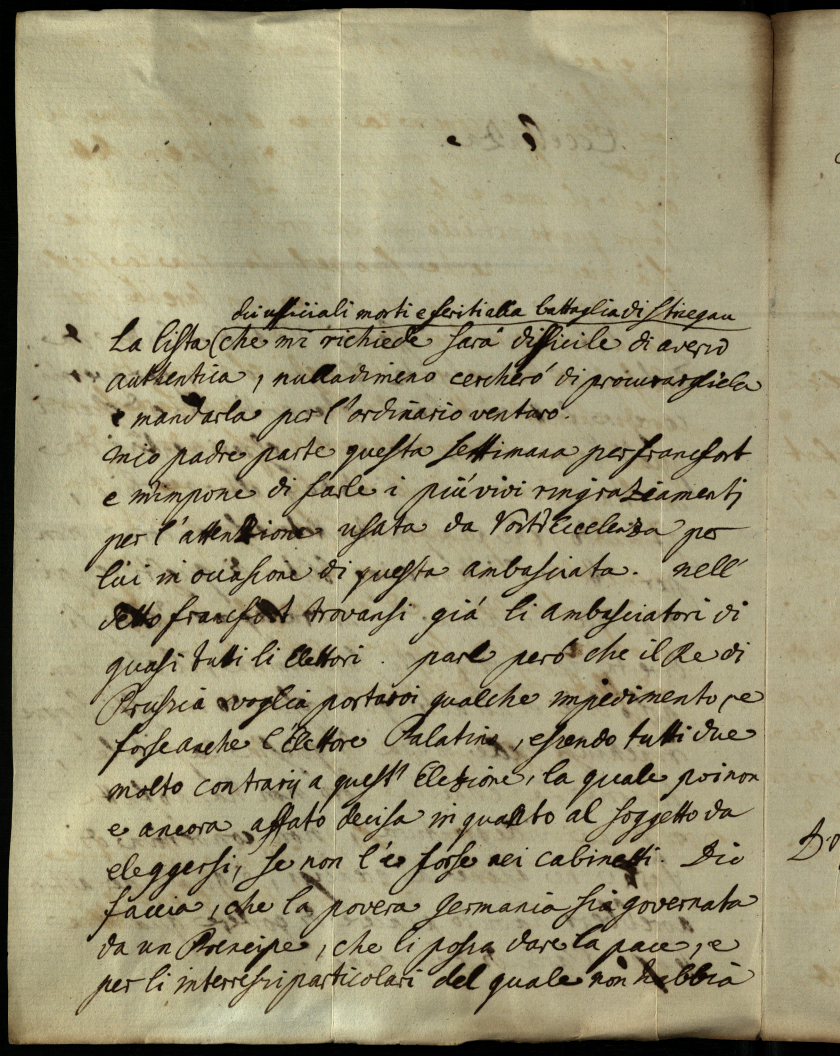 di ufficiali morti e feriti alla battaglia di Striegau
La lista (che mi richiede sará difficile di averlo
autentica, nulladimeno cercheró di procurargliela
e mandarla per l'ordinario venturo.
Mio padre parte questa settimana per francfort
e m'impone di farle i piú vivi ringraziamenti
per l'attenzione usata da Vostr'Eccelenza per
lui in occasione di questa ambasciata. nell'
detto francfort trovansi giá li ambasciatori di
quasi tutti li Elettori. pare peró che il Re di
Prussia voglia portarvi qualche impedimento, e
forse anche l'Elettore Palatino, essendo tutti due
molto contrarij a quest'Elezione, la quale poi non
e ancora affato decisa in quanto al soggetto da
eleggersi, se non l'é forse nei cabinetti. Dio
faccia, che la povera Germania sia governata
da un Prencipe, che li possa dare la pace, e
per li interressi particolari del quale non habbia